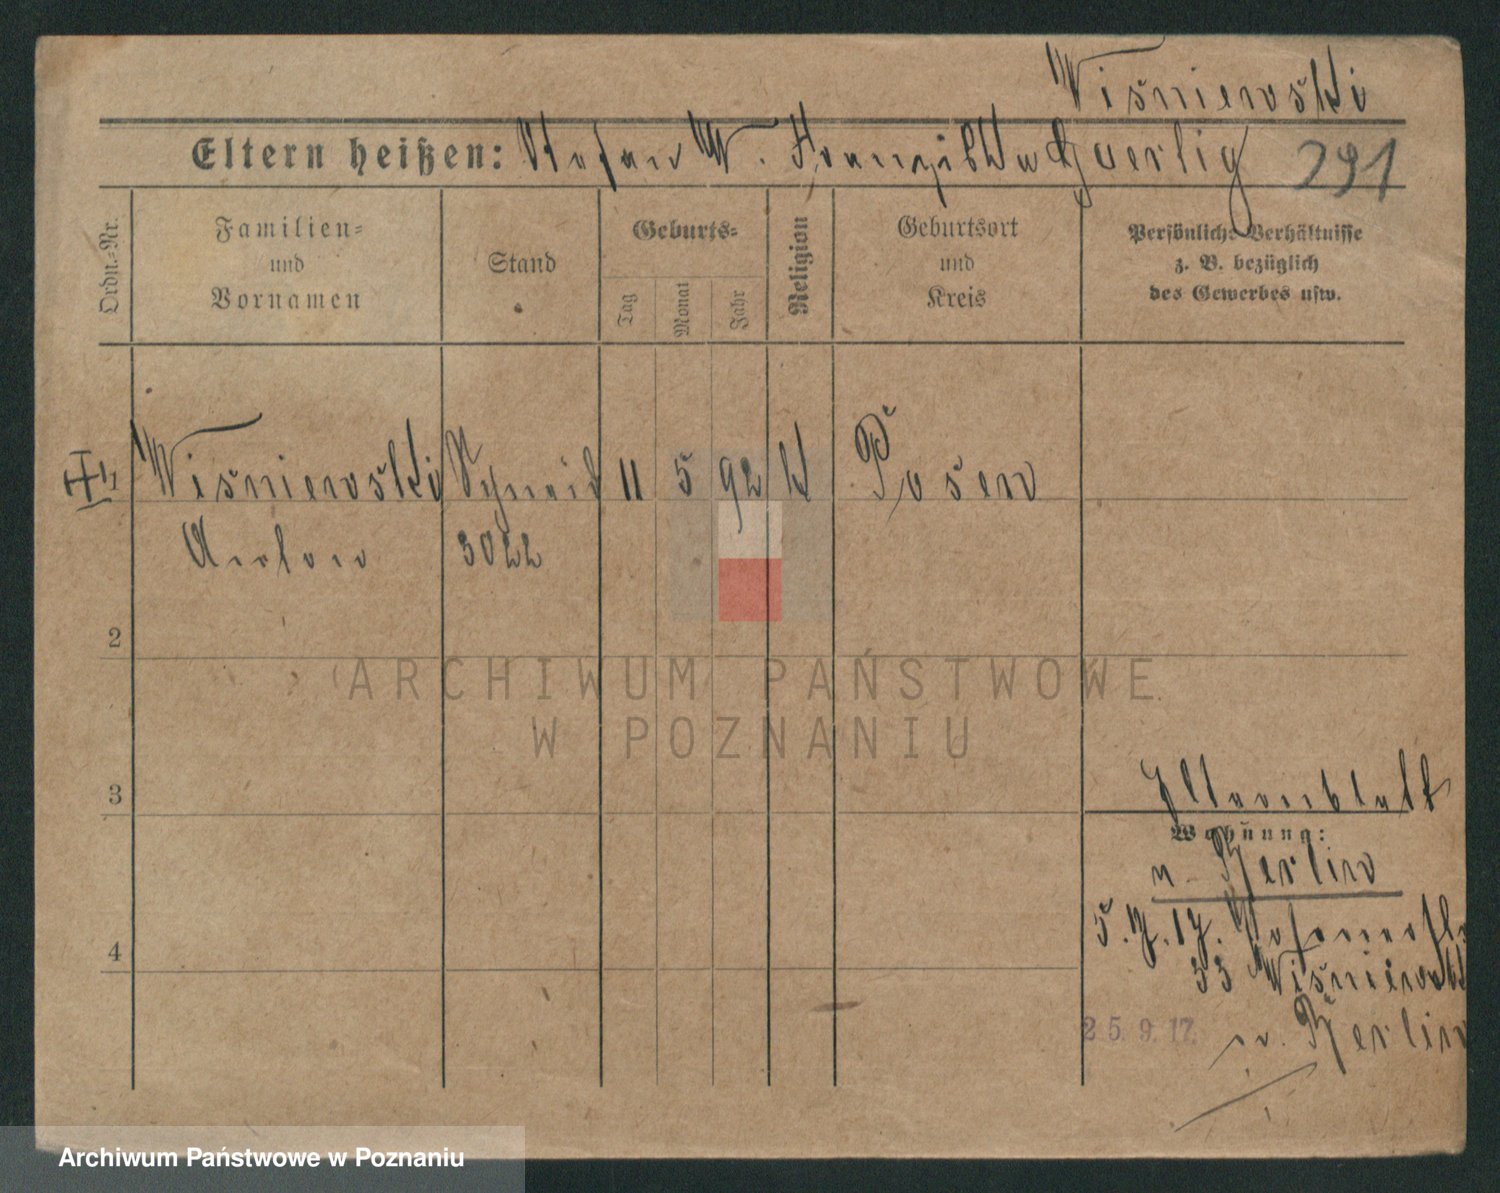 Wiśniewski
Eltern heißen: Stefan W. Franziska Goerlig 291
Ordn.-Nr.
Familien-
und
Vornamen
Stand
Geburts-
Tag
Monat
Jahr
Religion
Geburtsort
und
Kreis
Persönliche Verhältnisse
z. B. bezüglich
des Gewerbes usw.
Wiśniewski 11 5 92 k Posen
Anton 3022
2
3
4
Elternblatt
Wohnung:
n. Berlin
5. 7. 17.
33 Wiśniewski
25. 9. 17. n. Berlin
ARCHIWUM PAŃSTWOWE
W POZNANIU
Archiwum Państwowe w Poznaniu